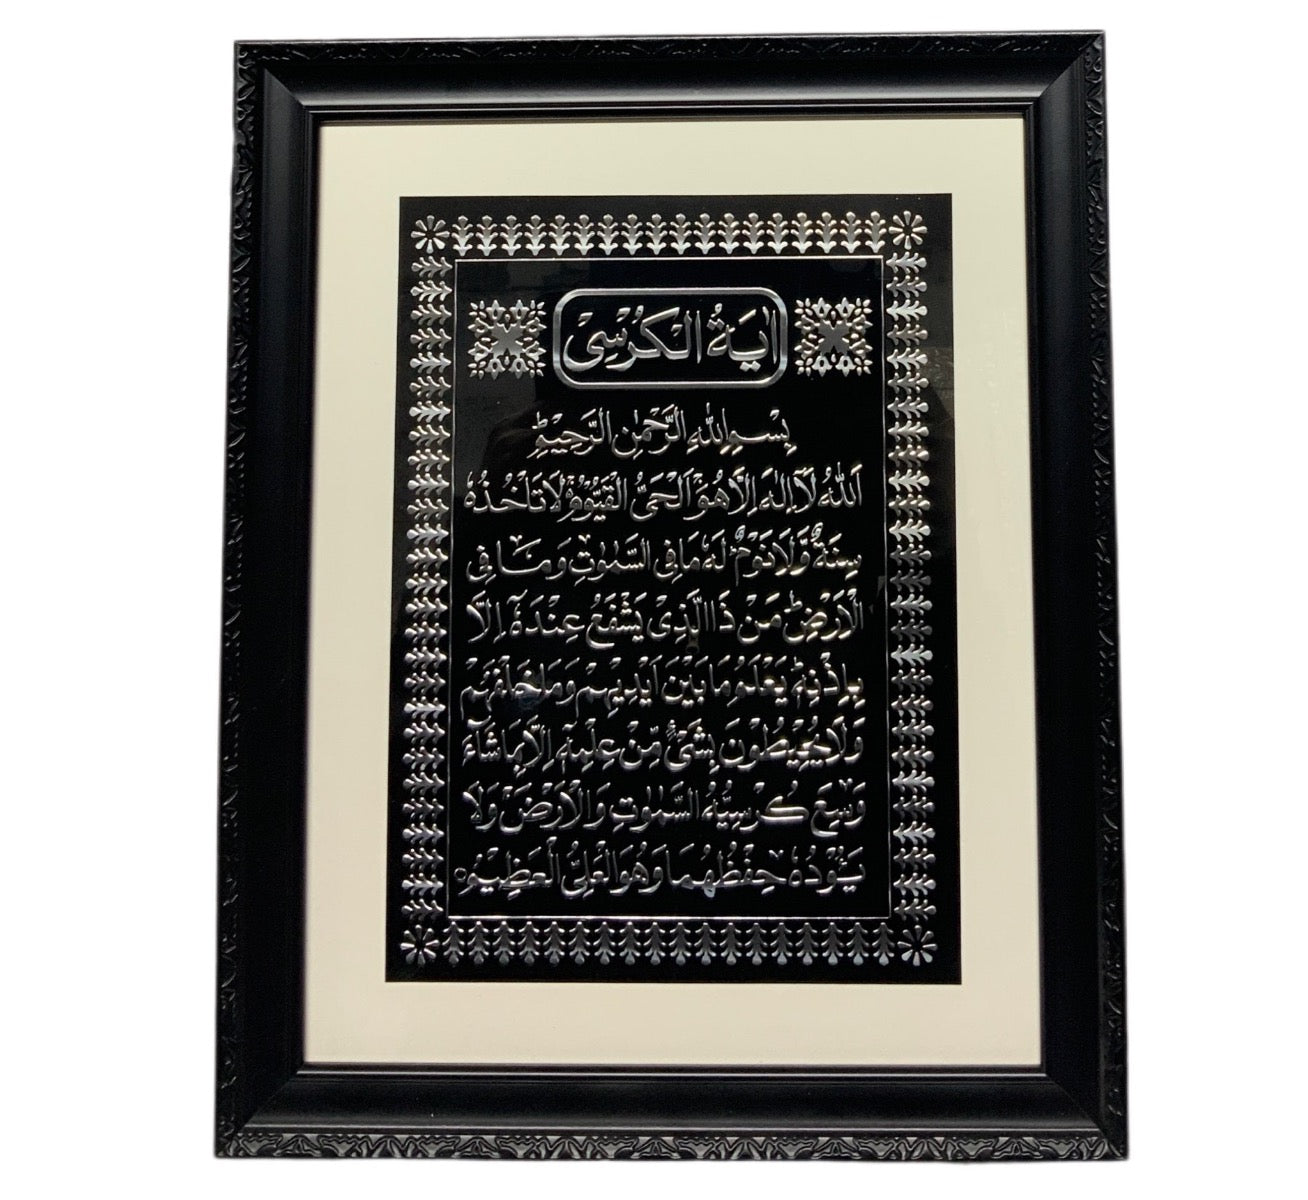 اٰيَةُ الْكُرْسِى
بِسْمِ اللهِ الرَّحْمٰنِ الرَّحِيْمِ
اَللهُ لَآ اِلٰهَ اِلَّا هُوَ اَلْحَىُّ الْقَيُّوْمُ لَا تَاْخُذُهٗ
سِنَةٌ وَّلَا نَوْمٌ لَهٗ مَا فِى السَّمٰوٰتِ وَمَا فِى
الْاَرْضِ مَنْ ذَا الَّذِىْ يَشْفَعُ عِنْدَهٗٓ اِلَّا
بِاِذْنِهٖ يَعْلَمُ مَا بَيْنَ اَيْدِيْهِمْ وَمَا خَلْفَهُمْ
وَلَا يُحِيْطُوْنَ بِشَىْءٍ مِّنْ عِلْمِهٖٓ اِلَّا بِمَا شَآءَ
وَسِعَ كُرْسِيُّهُ السَّمٰوٰتِ وَالْاَرْضَ وَلَا
يَئُوْدُهٗ حِفْظُهُمَا وَهُوَ الْعَلِىُّ الْعَظِيْمُ